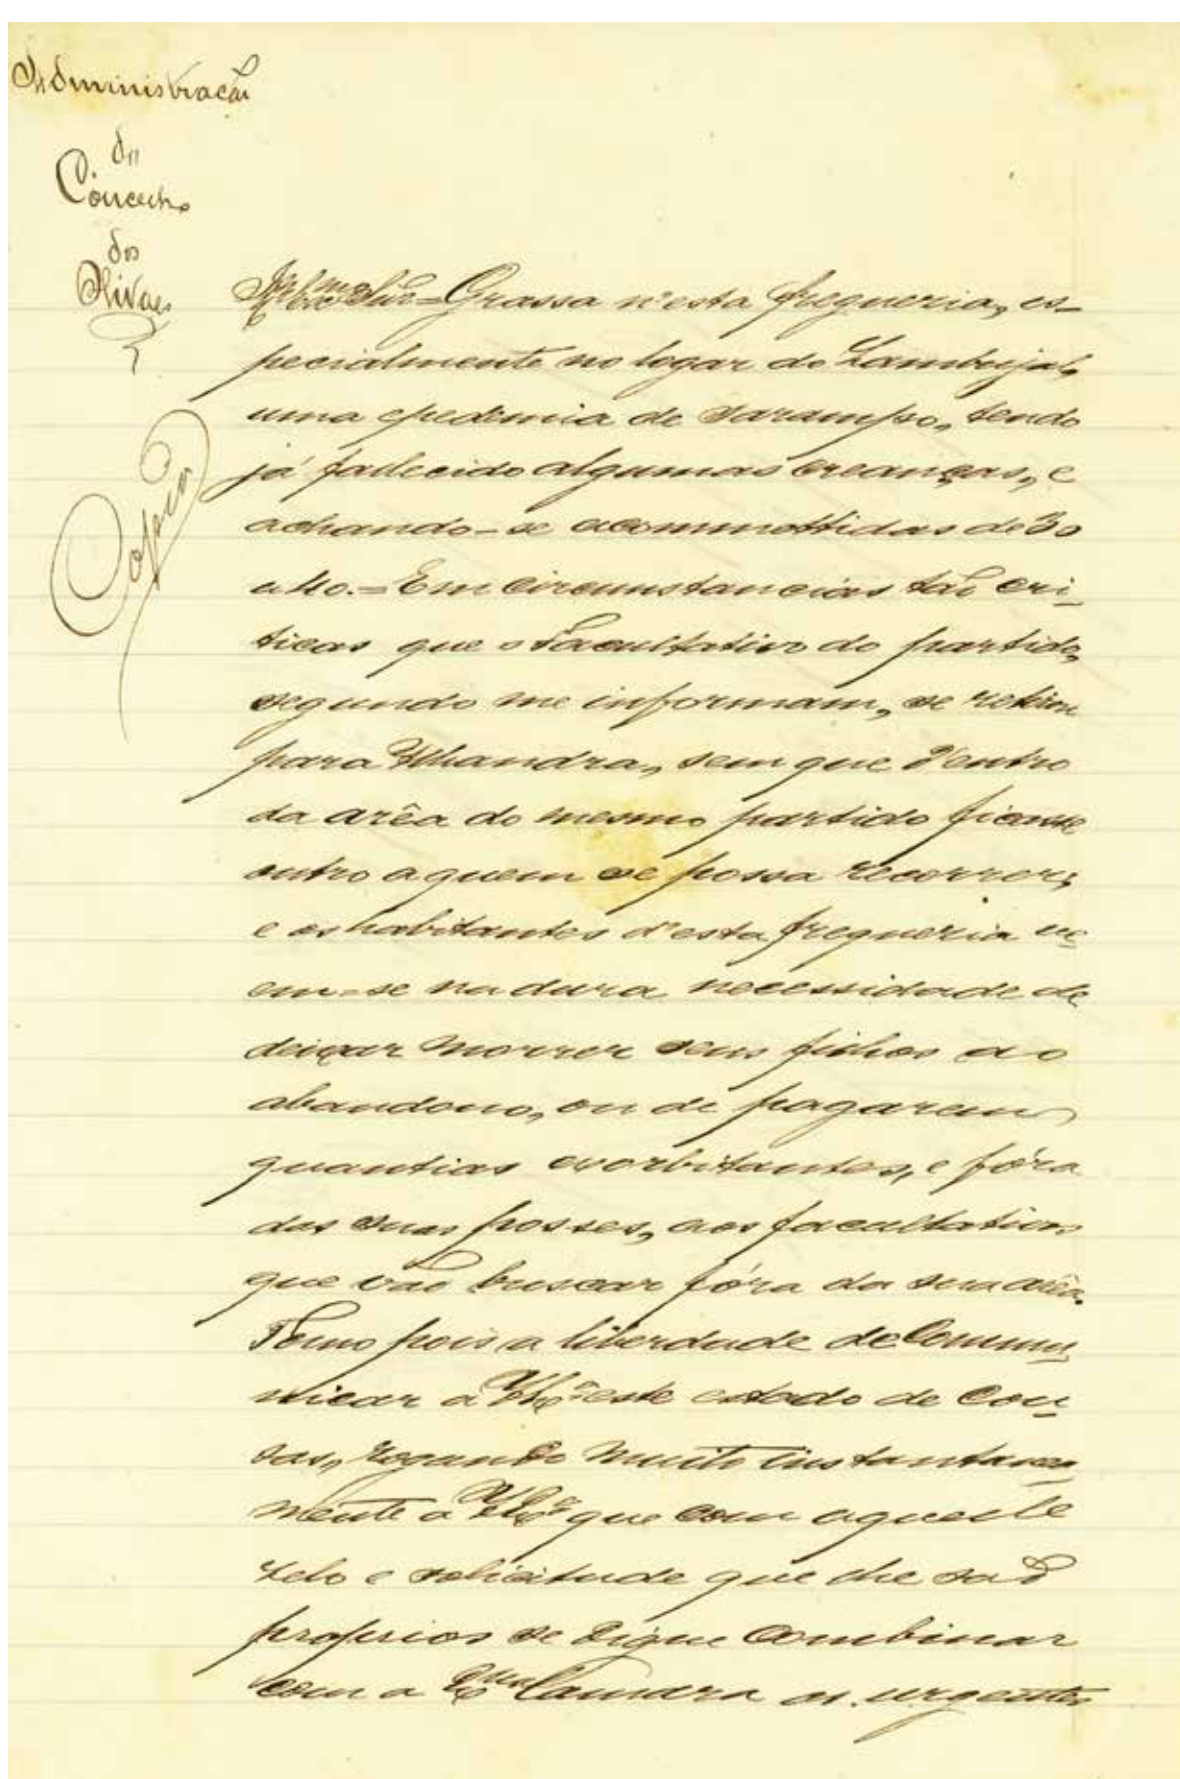 Administração
do
Concelho
dos
Olivaes
Copia
Illmo Exmo Snr = Grassa n'esta freguezia, es-
pecialmente no logar do Zambujal,
uma epedemia de sarampo, tendo
já fallecido algumas creanças, e
achando-se acommettidas de 30
a 40. = Em circumstancias tão cri-
ticas que o Facultativo do partido,
segundo me informam, se retira
para Alhandra, sem que d'entro
da arêa do mesmo partido ficasse
outro a quem se possa recorrer;
e os habitantes d'esta freguezia ve-
em-se na dura necessidade de
deixar morrer seus filhos ao
abandono, ou de pagarem
quantias exorbitantes, e fóra
das suas posses, aos facultativos
que vão buscar fóra da sua arêa.
Tomo pois a liberdade de Commu-
nicar a V. Exª este estado de Cou-
sas, rogando muito instantanea-
mente a V. Exª que com aquelle
zelo e solicitude que lhe são
proprios se digne Combinar
com a Exma Camara os urgentes